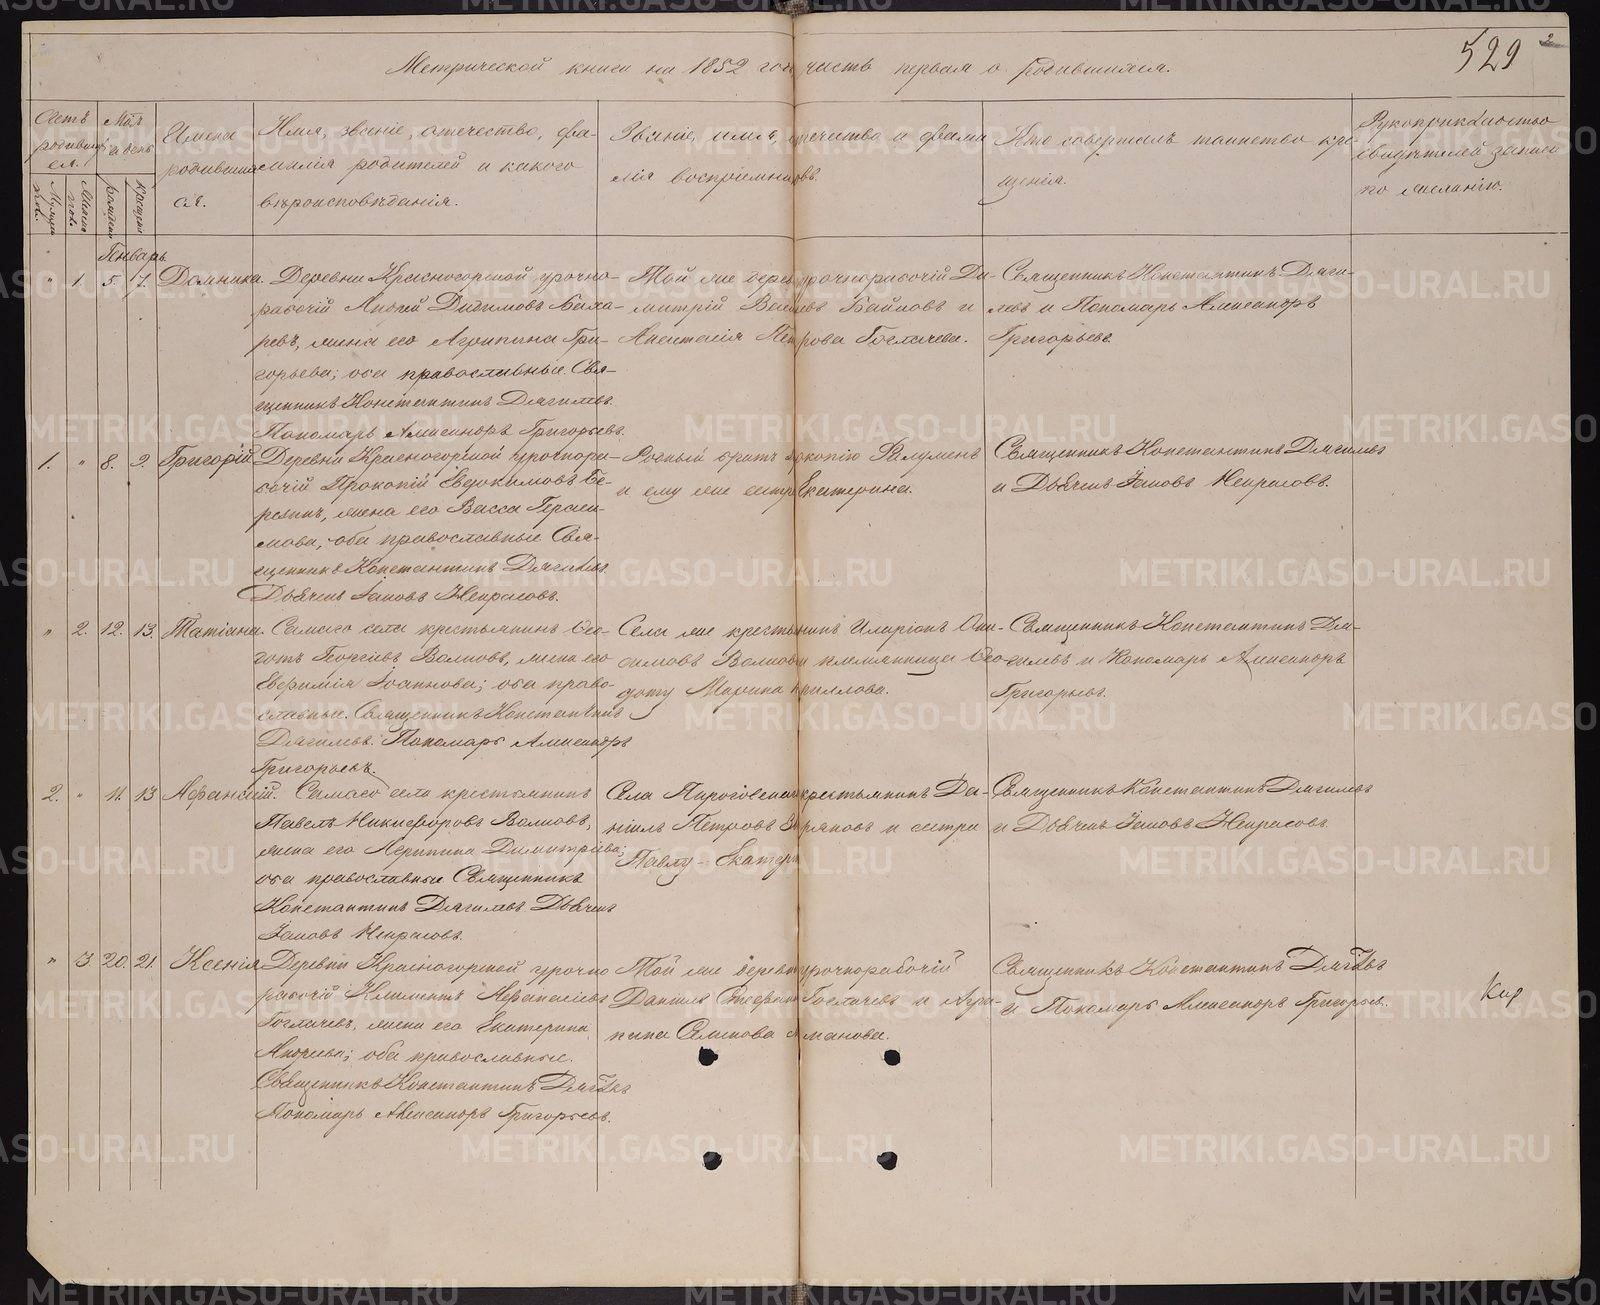 529
Метрической книги на 1852 год часть первая о родившихся.
Счетъ родившихся.
Мужска пола.
Женска пола.
Мѣсяцъ и день
рожденія
крещенія
Имена родившихся.
Имя, званіе, отечество, фа-
милія родителей и какого
вѣроисповѣданія.
Званіе, имя, отечество и фами
лія воспріемниковъ.
Кто совершалъ таинство кре
щенія.
Рукоприкладство
свидѣтелей записи
по желанію.
Январь
" 1. 5. 7. Домника.
Деревни Красногорской урочно-
рабочій Андрей Дидимовъ Баха-
ревъ, жена его Агрипина Гри-
горьева; оба православные. Свя-
щенникъ Константинъ Дягилевъ.
Пономарь Александръ Григорьевъ.
Той же дерев урочнорабочій Ди-
митрій Байновъ и
Анастасія Петрова Гоглачева.
Священникъ Константинъ Дяги-
левъ и Пономарь Александръ
Григорьевъ.
1. " 8. 9. Григорій
Деревни Красногорской урочнора-
бочій Прокопій Евдокимовъ Бе-
резинъ, жена его Васса Гераси-
мова; оба православные Свя-
щенникъ Константинъ Дягилевъ.
Дьячекъ Іаковъ Некрасовъ.
Родный братъ Прокопію Филуменъ
и ему же сестра Екатерина.
Священникъ Константинъ Дягилевъ
и Дьячекъ Іаковъ Некрасовъ.
" 2. 12. 13. Татіана.
Самаго села крестьянинъ Ѳео-
дотъ Георгіевъ Волковъ, жена его
Евфимія Іоаннова; оба право-
славные. Священникъ Константинъ
Дягилевъ. Пономарь Александръ
Григорьевъ.
Села же крестьянинъ Иларіонъ Они-
симовъ Волковъ и племянница Ѳео
доту Марина Кирилова.
Священникъ Константинъ Дя-
гилевъ и Пономарь Александръ
Григорьевъ.
2. " 11. 13 Афанасій.
Самаго села крестьянинъ
Павелъ Никифоровъ Волковъ,
жена его Агрипина Димитріева;
оба православные Священникъ
Константинъ Дягилевъ Дьячекъ
Іаковъ Некрасовъ.
Села Пироговскаго крестьянинъ Да-
ніилъ Петровъ Зыряновъ и сестра
Павлу - Екатерина
Священникъ Константинъ Дягилевъ
и Дьячекъ Іаковъ Некрасовъ.
" 3. 20. 21. Ксенія
Деревни Красногорской урочно
рабочій Климентъ Афанасіевъ
Гоглачевъ, жена его Екатерина
Андреева; оба православные.
Священникъ Константинъ Дягилевъ
Пономарь Александръ Григорьевъ.
Той же деревни урочнорабочій
Даніилъ Стефановъ Гоглачевъ и Агри-
пина Семенова
Священникъ Константинъ Дягилевъ
и Пономарь Александръ Григорьев.
METRIKI.GASO-URAL.RU